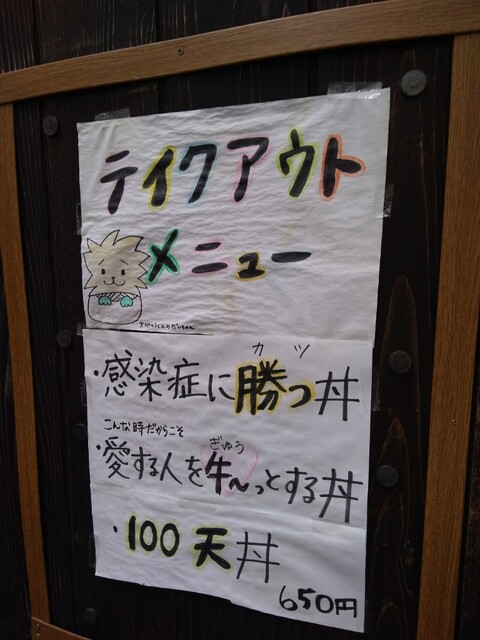 テイクアウト
メニュー
カツ
・感染症に勝つ丼
こんな時だからこそ
ぎゅう
・愛する人を牛〜っとする丼
・100天丼
650円